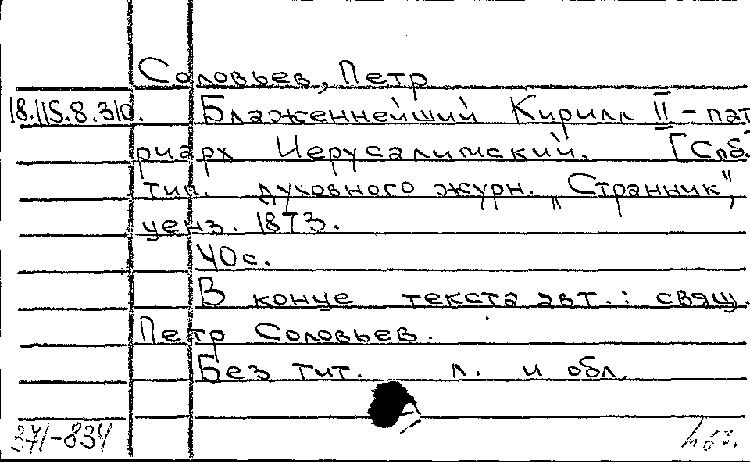 Соловьев, Петр
18.115.8.310. Блаженнейший Кирилл II - пат
риарх Иерусалимский. [Спб.
тип. духовного журн. „Странник",
ценз. 1873.
40с.
В конце текста авт.: свящ.
Петр Соловьев.
Без тит. л. и обл.
371-834